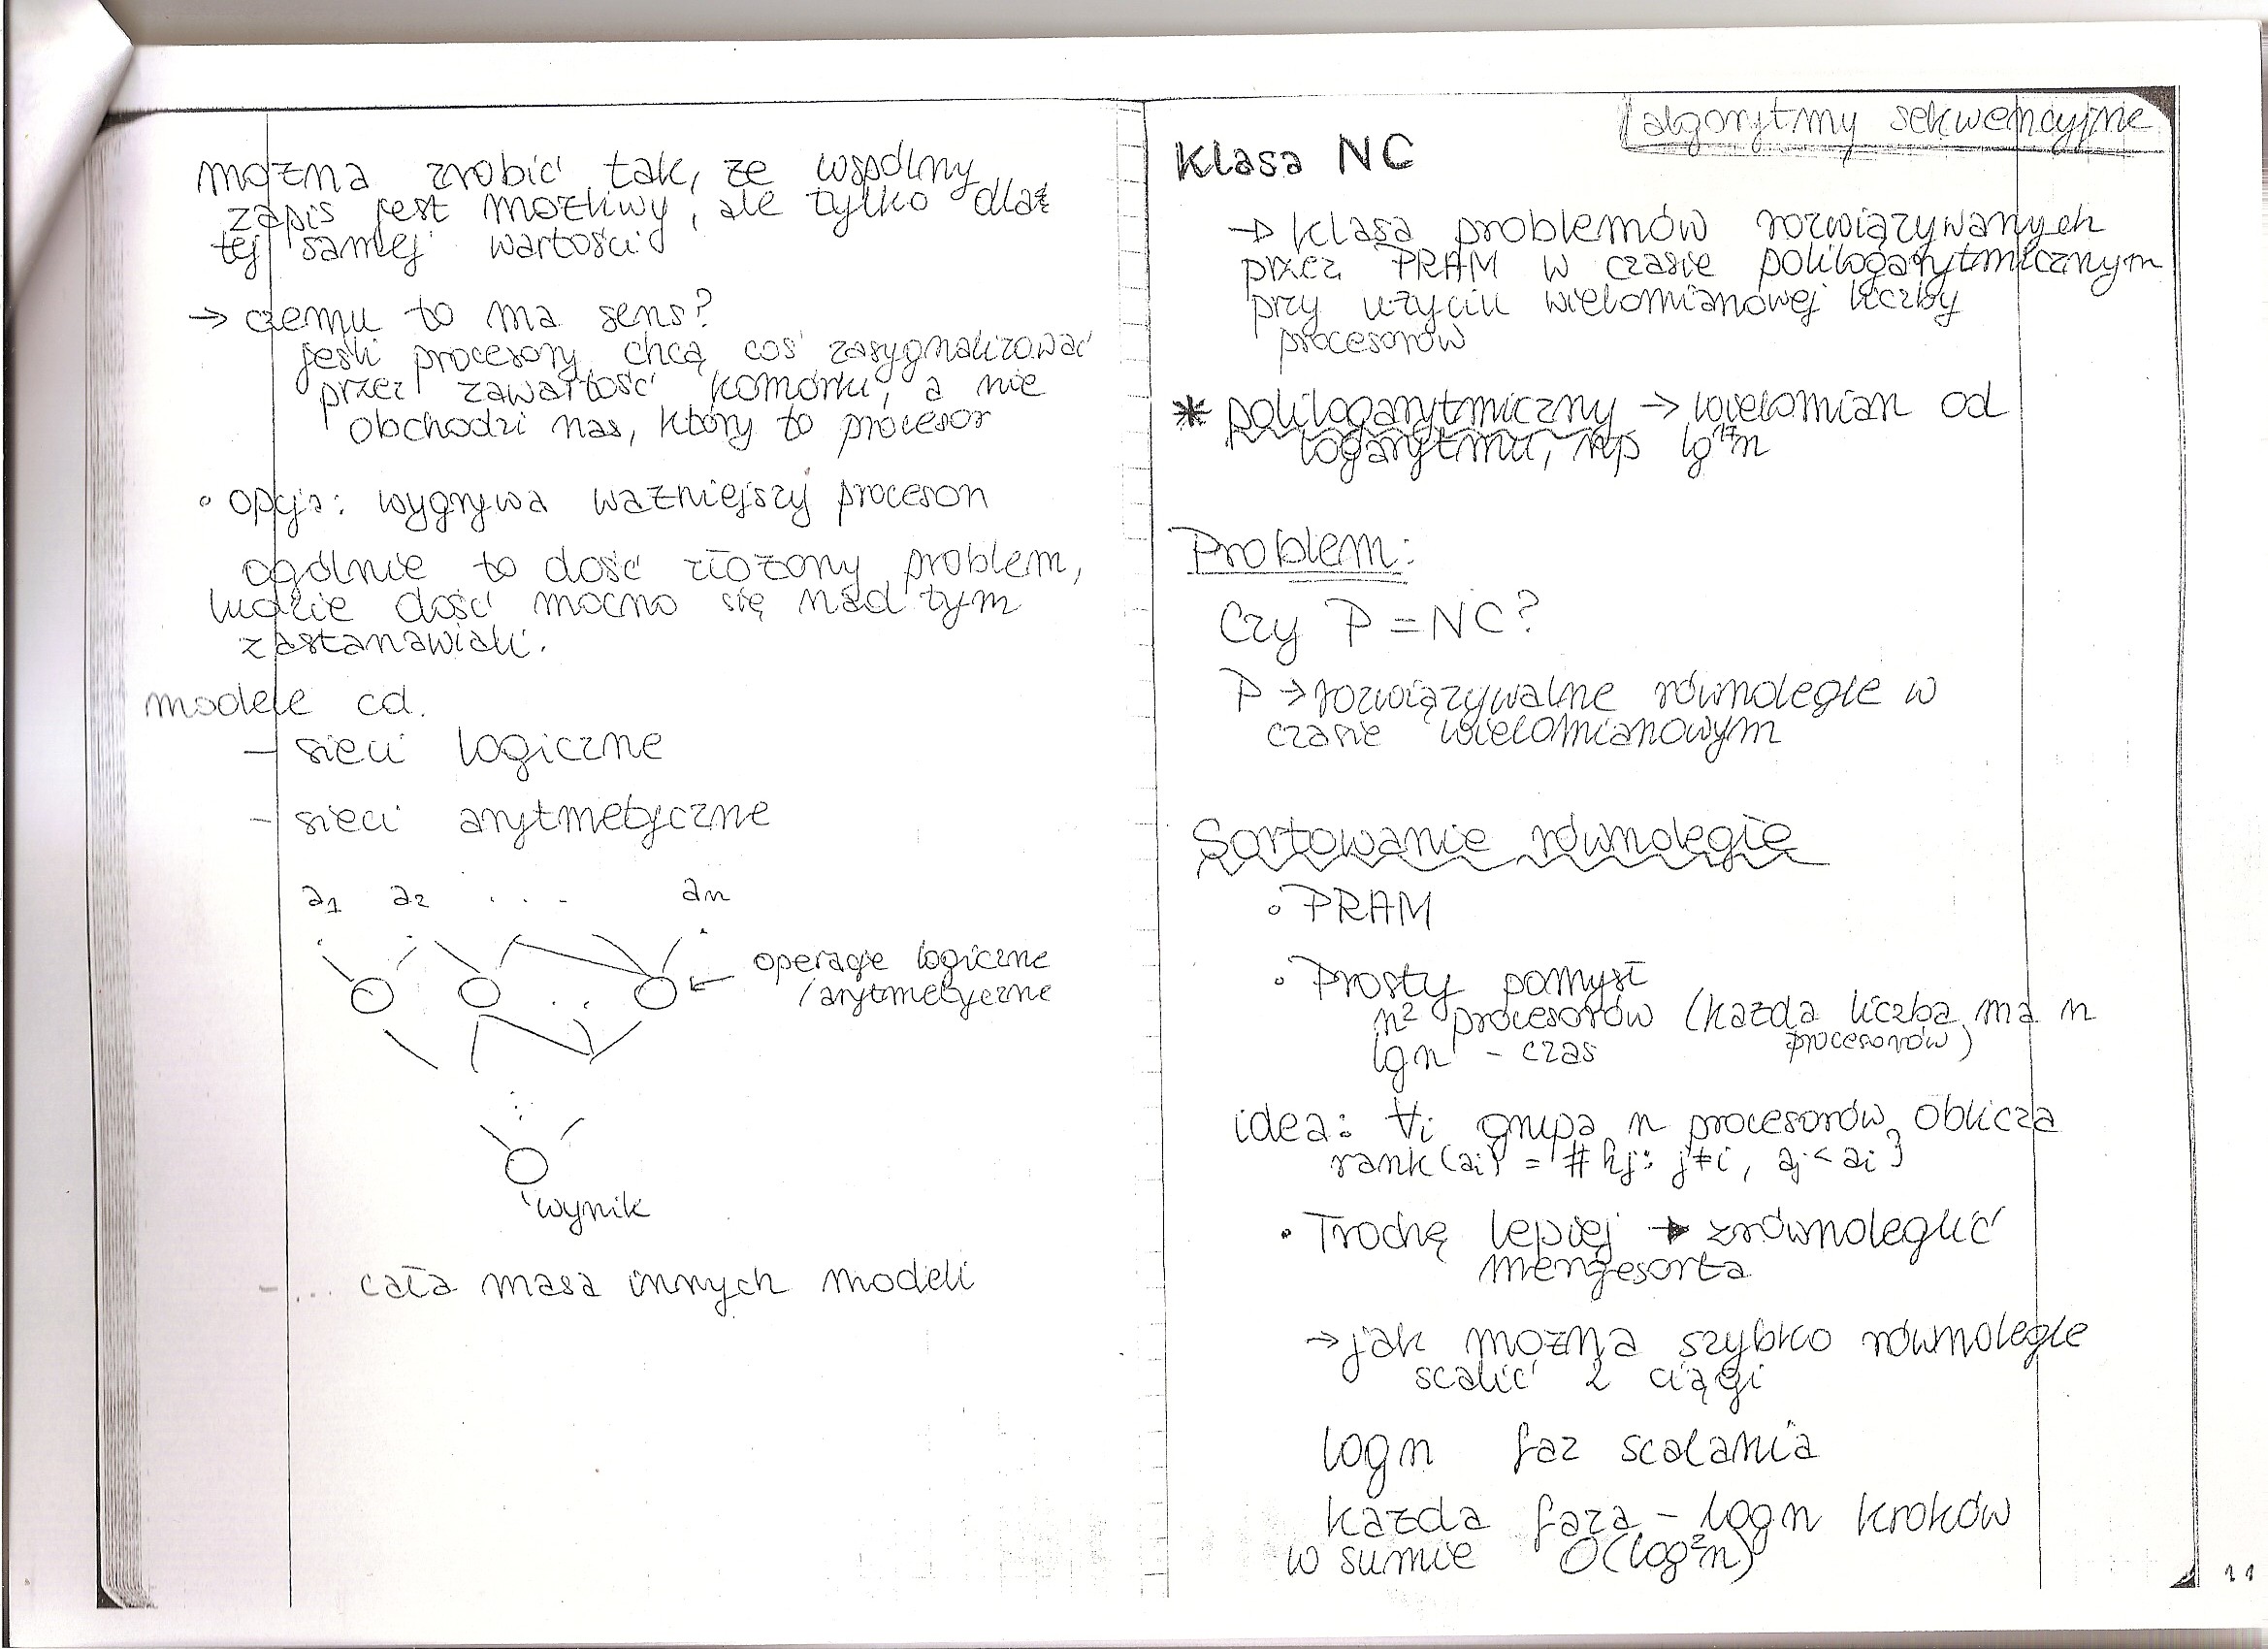 można zrobić tak, że wspólny
zapis jest możliwy, ale tylko dla
tej samej wartości
→ czemu to ma sens?
jeśli procesory chcą coś zasygnalizować
przez zawartość komórki, a nie
obchodzi nas, który to procesor
• opcja: wygrywa ważniejszy procesor
ogólnie to dość złożony problem,
ludzie dość mocno się nad tym
zastanawiali.
modele cd.
- sieci logiczne
- sieci arytmetyczne
a1 a2 . . . an
operacje logiczne
/arytmetyczne
wynik
- ... cała masa innych modeli
algorytmy sekwencyjne
Klasa NC
→ klasa problemów rozwiązywanych
przez PRAM w czasie polilogarytmicznym
przy użyciu wielomianowej liczby
procesorów
* polilogarytmiczny → wielomian od
logarytmu, np lg¹⁷n
Problem:
Czy P = NC?
P → rozwiązywalne równolegle w
czasie wielomianowym
Sortowanie równoległe
• PRAM
• Prosty pomysł
n² procesorów (każda liczba ma n
procesorów)
lg n - czas
idea: ∀i grupa n procesorów oblicza
rank(ai) = #{j: j≠i, aj < ai}
• Trochę lepiej → zrównoleglić
mergesorta
→ jak można szybko równolegle
scalić 2 ciągi
log n faz scalania
każda faza - log n kroków
w sumie O(log²n)
11